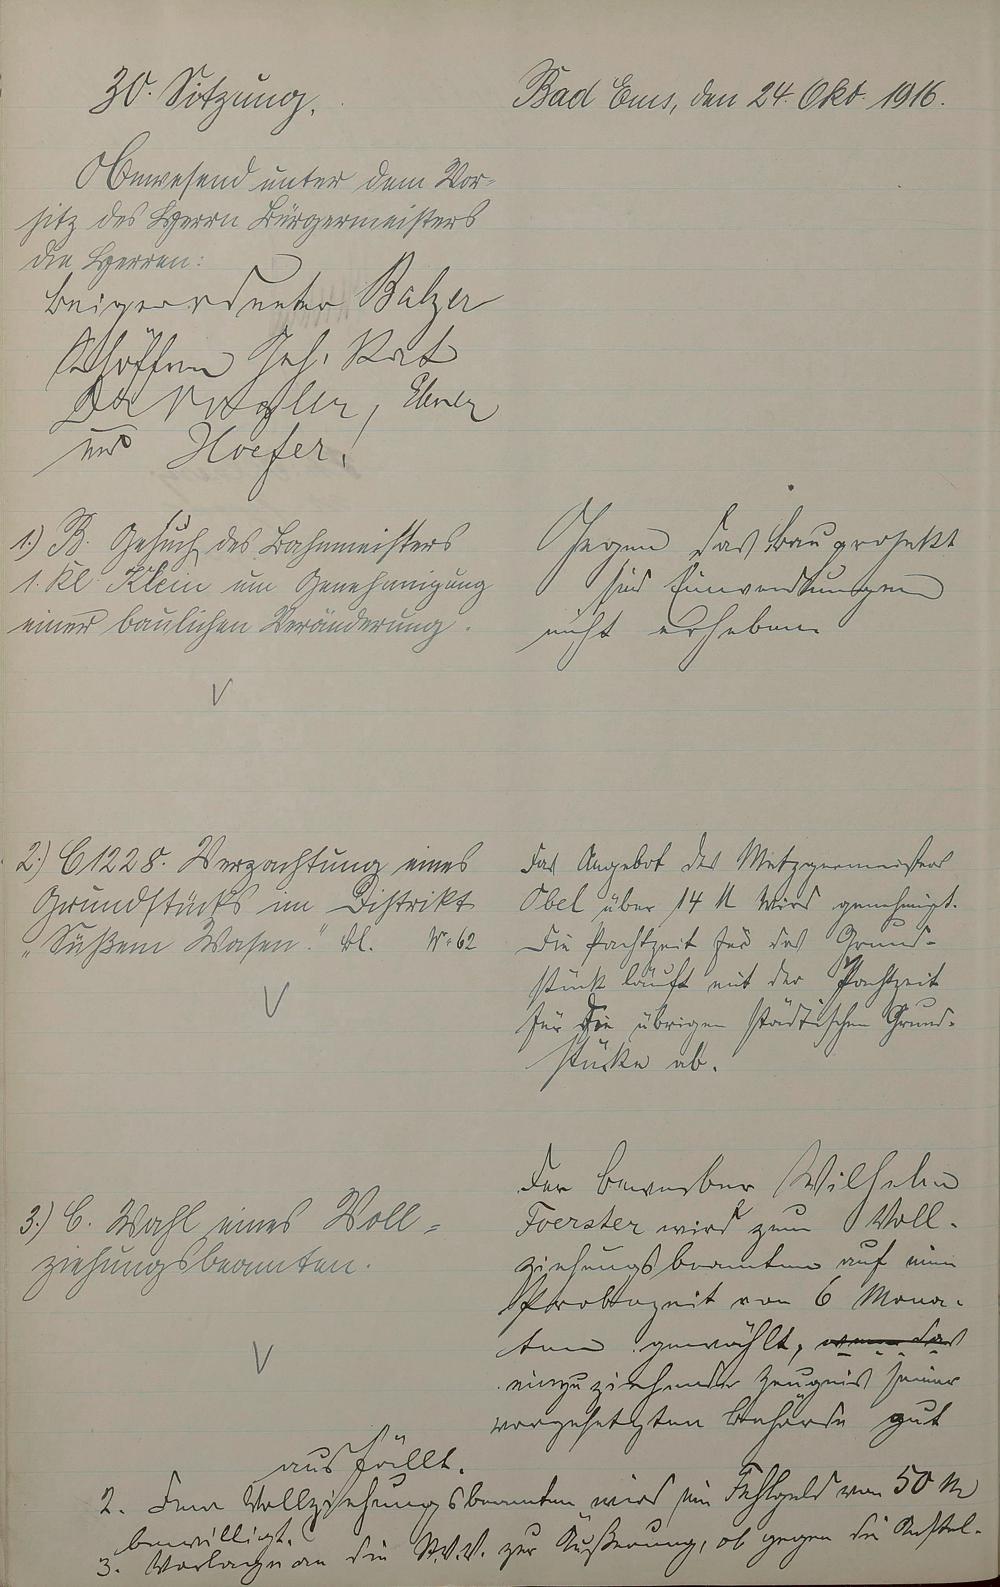 30. Sitzung.
Bad Ems, den 24. Okt. 1916.
Anwesend unter dem Vor-
sitz des Herrn Bürgermeisters
die Herren:
Beigeordneter Balzer
Schöffen Geh. Rat
Dr Vogler, Ebner
und Hoefer.
1.) B. Gesuch des Bahnmeisters
1. Kl Klein um Genehmigung
einer baulichen Veränderung.
Gegen das Bauprojekt
sind Einwendungen
nicht erheben
2.) C 1228. Verpachtung eines
Grundstücks im Distrikt
„Süßem Wasen." Bl. N. 62
Das Angebot des Metzgermeisters
Obel über 14 M wird genehmigt.
Die Pachtzeit für das Grund-
stück läuft mit der Pachtzeit
für die übrigen städtischen Grund-
stücke ab.
3.) C. Wahl eines Voll-
ziehungsbeamten.
Der Bewerber Wilhelm
Foerster wird zum Voll-
ziehungsbeamten auf eine
Probezeit von 6 Mona-
ten gewählt, wenn das
einzuziehende Zeugnis seiner
vorgesetzten Behörde gut
ausfällt.
2. Dem Vollziehungsbeamten wird ein Fehlgeld von 50 M
bewilligt.
3. Vorlage an die St.V.V. zur Äußerung, ob gegen die Anstel-